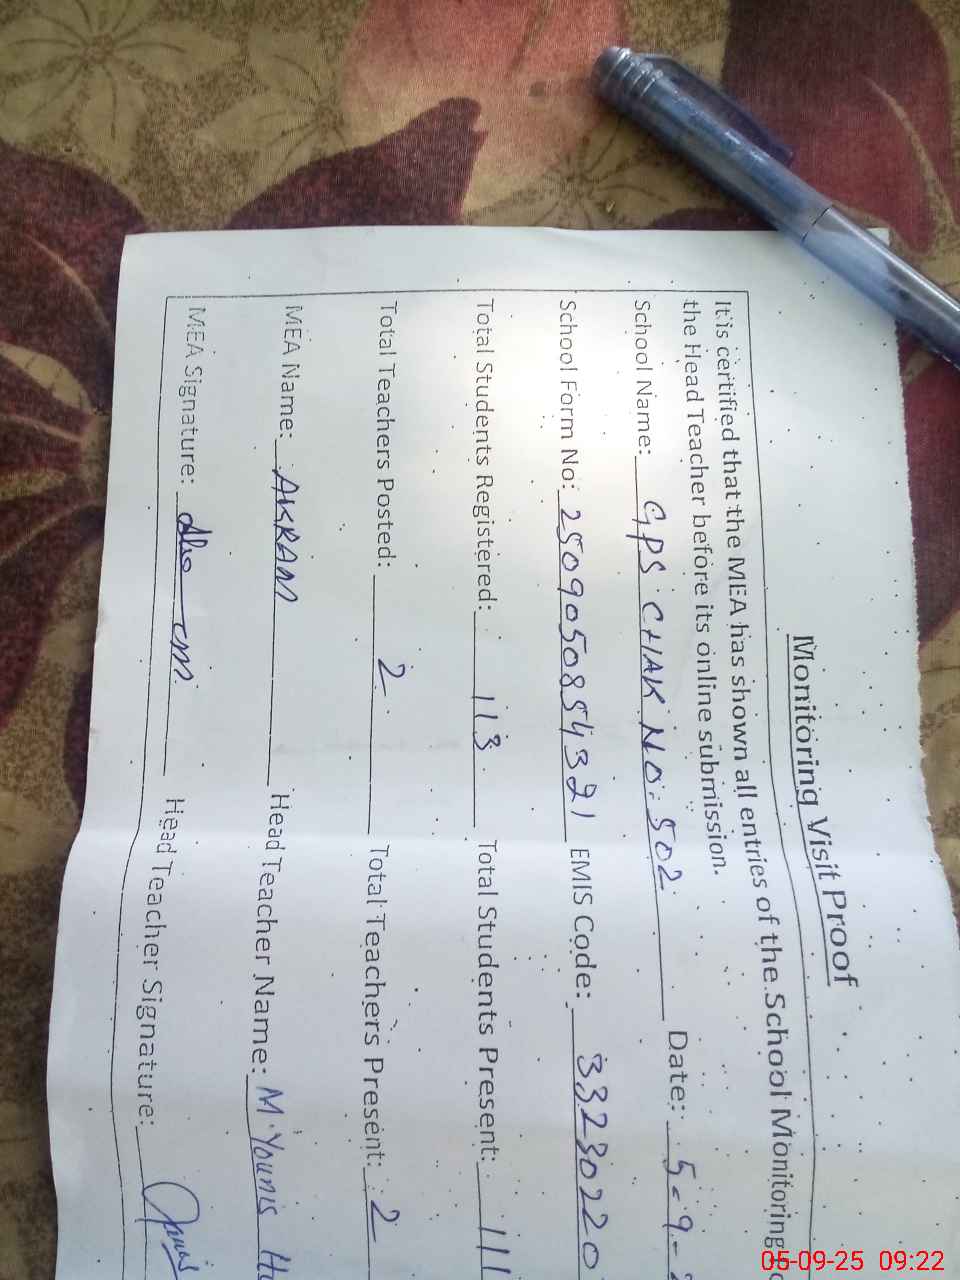 Monitoring Visit Proof
It is certified that the MEA has shown all entries of the School Monitoring
the Head Teacher before its online submission.
School Name: GPS CHAK NO. 502 Date: 5-9-
School Form No: 2509050854321 EMIS Code: 33230220
Total Students Registered: 113 Total Students Present: 111
Total Teachers Posted: 2 Total Teachers Present: 2
MEA Name: AKRAM Head Teacher Name: M. Younis
MEA Signature: Head Teacher Signature:
05-09-25 09:22